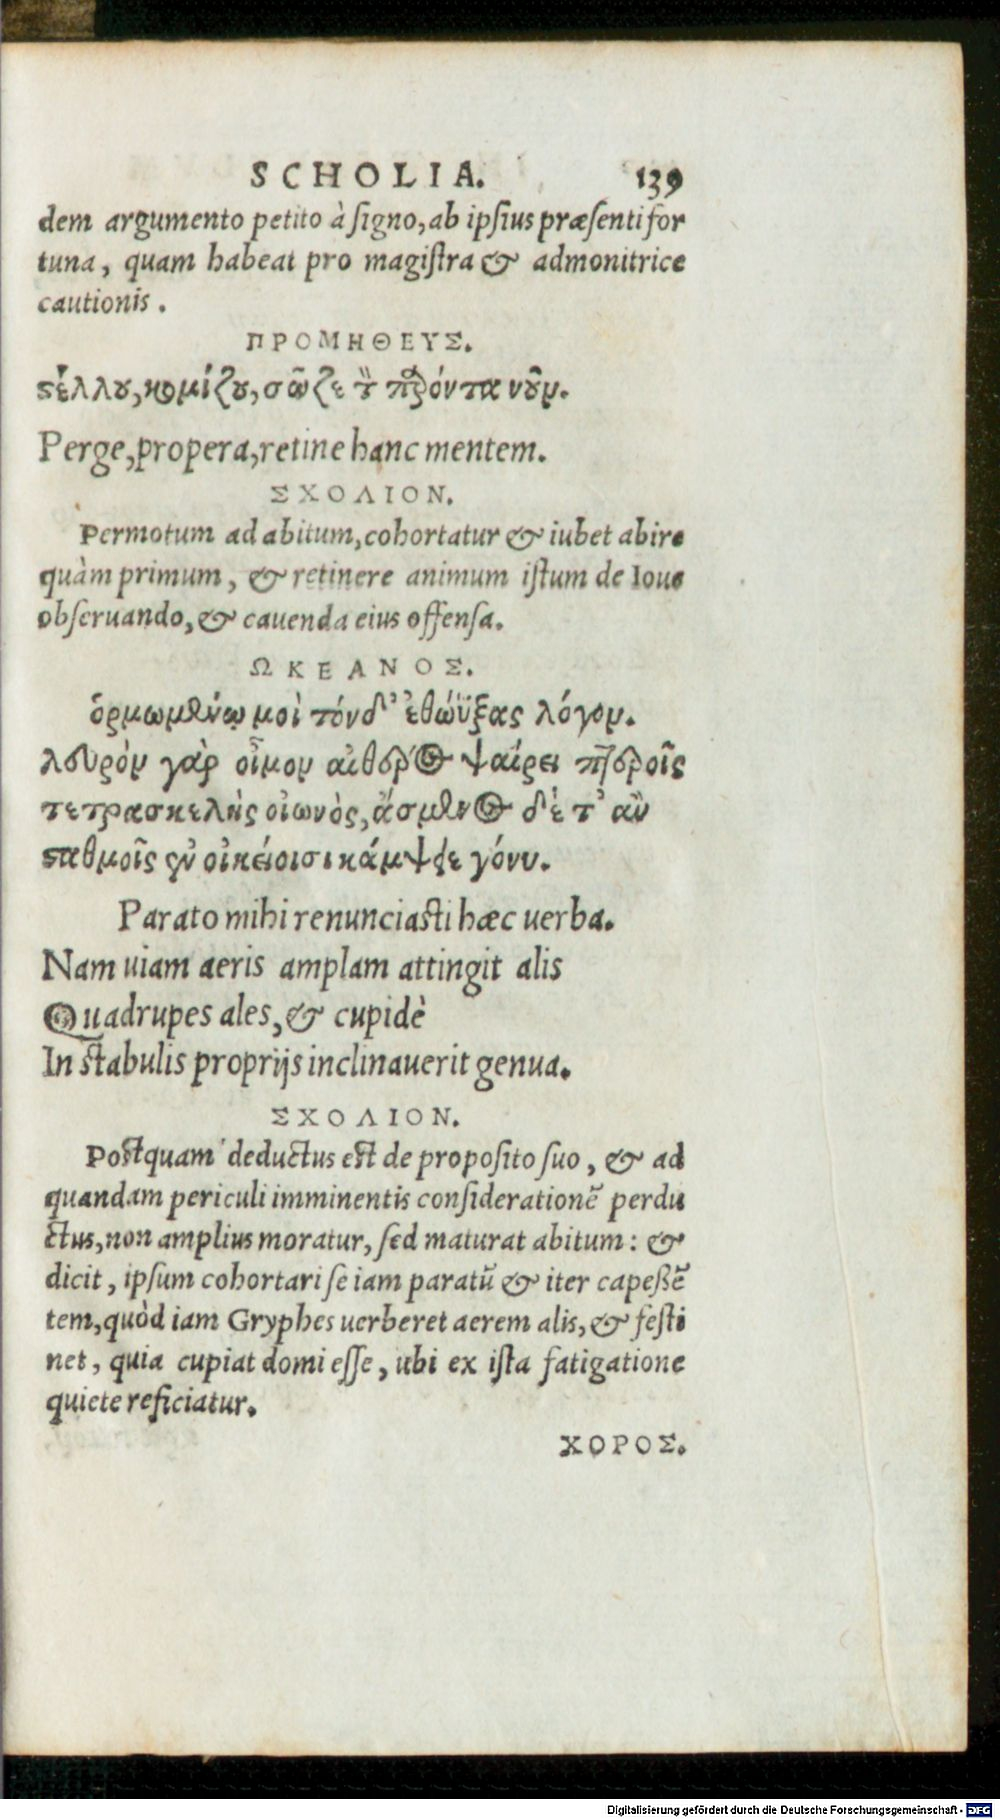 SCHOLIA. 139
dem argumento petito à signo, ab ipsius præsenti for
tuna, quam habeat pro magistra & admonitrice
cautionis.
ΠΡΟΜΗΘΕΥΣ.
στέλλου, κομίζου, σῶζε τὸν παρόντα νοῦν.
Perge, propera, retine hanc mentem.
ΣΧΟΛΙΟΝ.
Permotum ad abitum, cohortatur & iubet abire
quàm primum, & retinere animum istum de Ioue
obseruando, & cauenda eius offensa.
ΩΚΕΑΝΟΣ.
ὁρμωμένῳ μοὶ τόνδ' ἐθώϋξας λόγον.
λευρὸν γὰρ οἶμον αἰθέρος ψαίρει πτεροῖς
τετρασκελὴς οἰωνὸς, ἄσμενος δέ τ' ἂν
σταθμοῖς ἐν οἰκείοισι κάμψειε γόνυ.
Parato mihi renunciasti hæc uerba.
Nam uiam aeris amplam attingit alis
Quadrupes ales, & cupidè
In stabulis proprijs inclinauerit genua.
ΣΧΟΛΙΟΝ.
Postquam deductus est de proposito suo, & ad
quandam periculi imminentis considerationē perdu
ctus, non amplius moratur, sed maturat abitum: &
dicit, ipsum cohortari se iam paratū & iter capeßē
tem, quòd iam Gryphes uerberet aerem alis, & festi
net, quia cupiat domi esse, ubi ex ista fatigatione
quiete reficiatur.
ΧΟΡΟΣ.
Digitalisierung gefördert durch die Deutsche Forschungsgemeinschaft - DFG